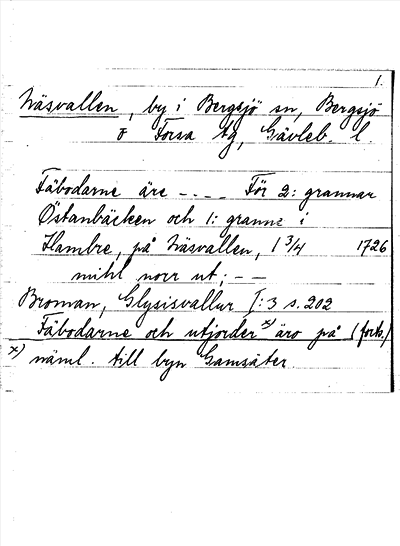 1.
Näsvallen, by i Bergsjö sn, Bergsjö
o Forsa tg, Gävleb. l.
Fäbodarne äre – . – . För 2: grannar
Östanbäcken och 1: granne i
Hambre, på Näsvallen, 1 3/4 1726
mihl norr ut; – –
Broman, Glysisvallur I:3 s. 202
Fäbodarne och utjorder x) äro på (forts.)
x) näml. till byn Gamsäter.